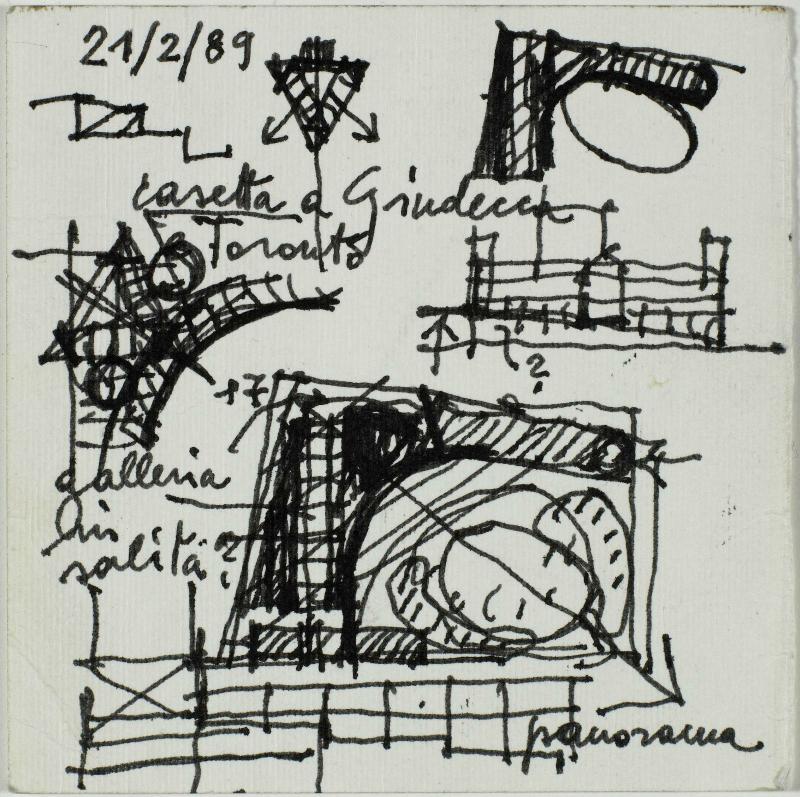 21/2/89
casetta a Giudecca
Toronto
?
+7
galleria
in
salita?
panorama